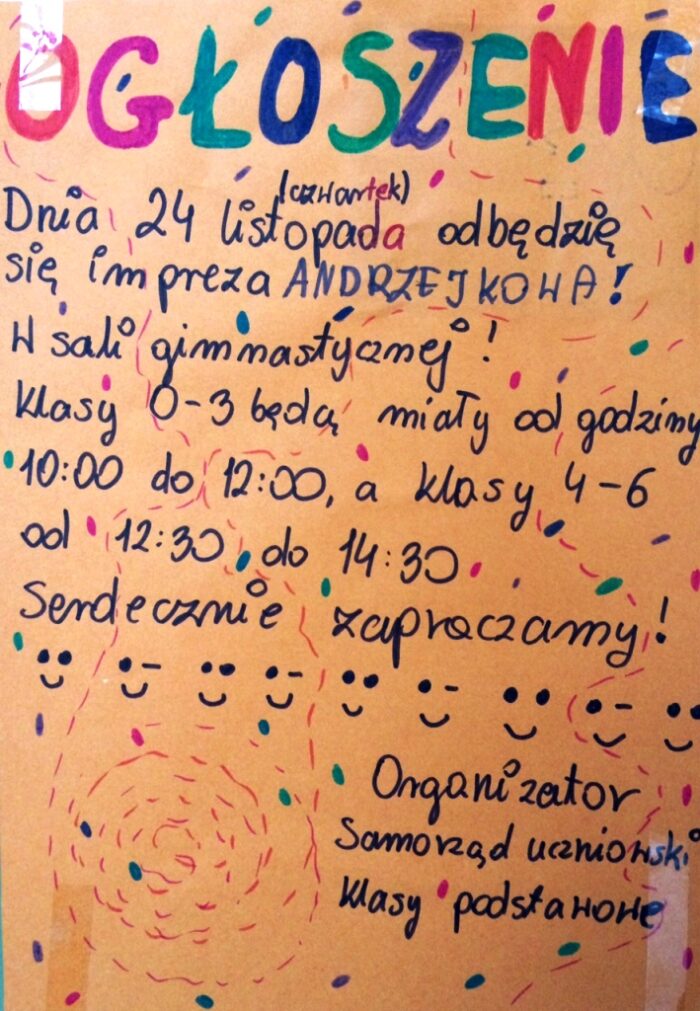 OGŁOSZENIE
(czwartek)
Dnia 24 listopada odbędzię
się impreza ANDRZEJKOWA!
W sali gimnastycznej!
Klasy 0-3 będą miały od godziny
10:00 do 12:00, a klasy 4-6
od 12:30 do 14:30
Serdecznie zapraczamy!
Organizator
Samorząd uczniowski
Klasy podstawowe